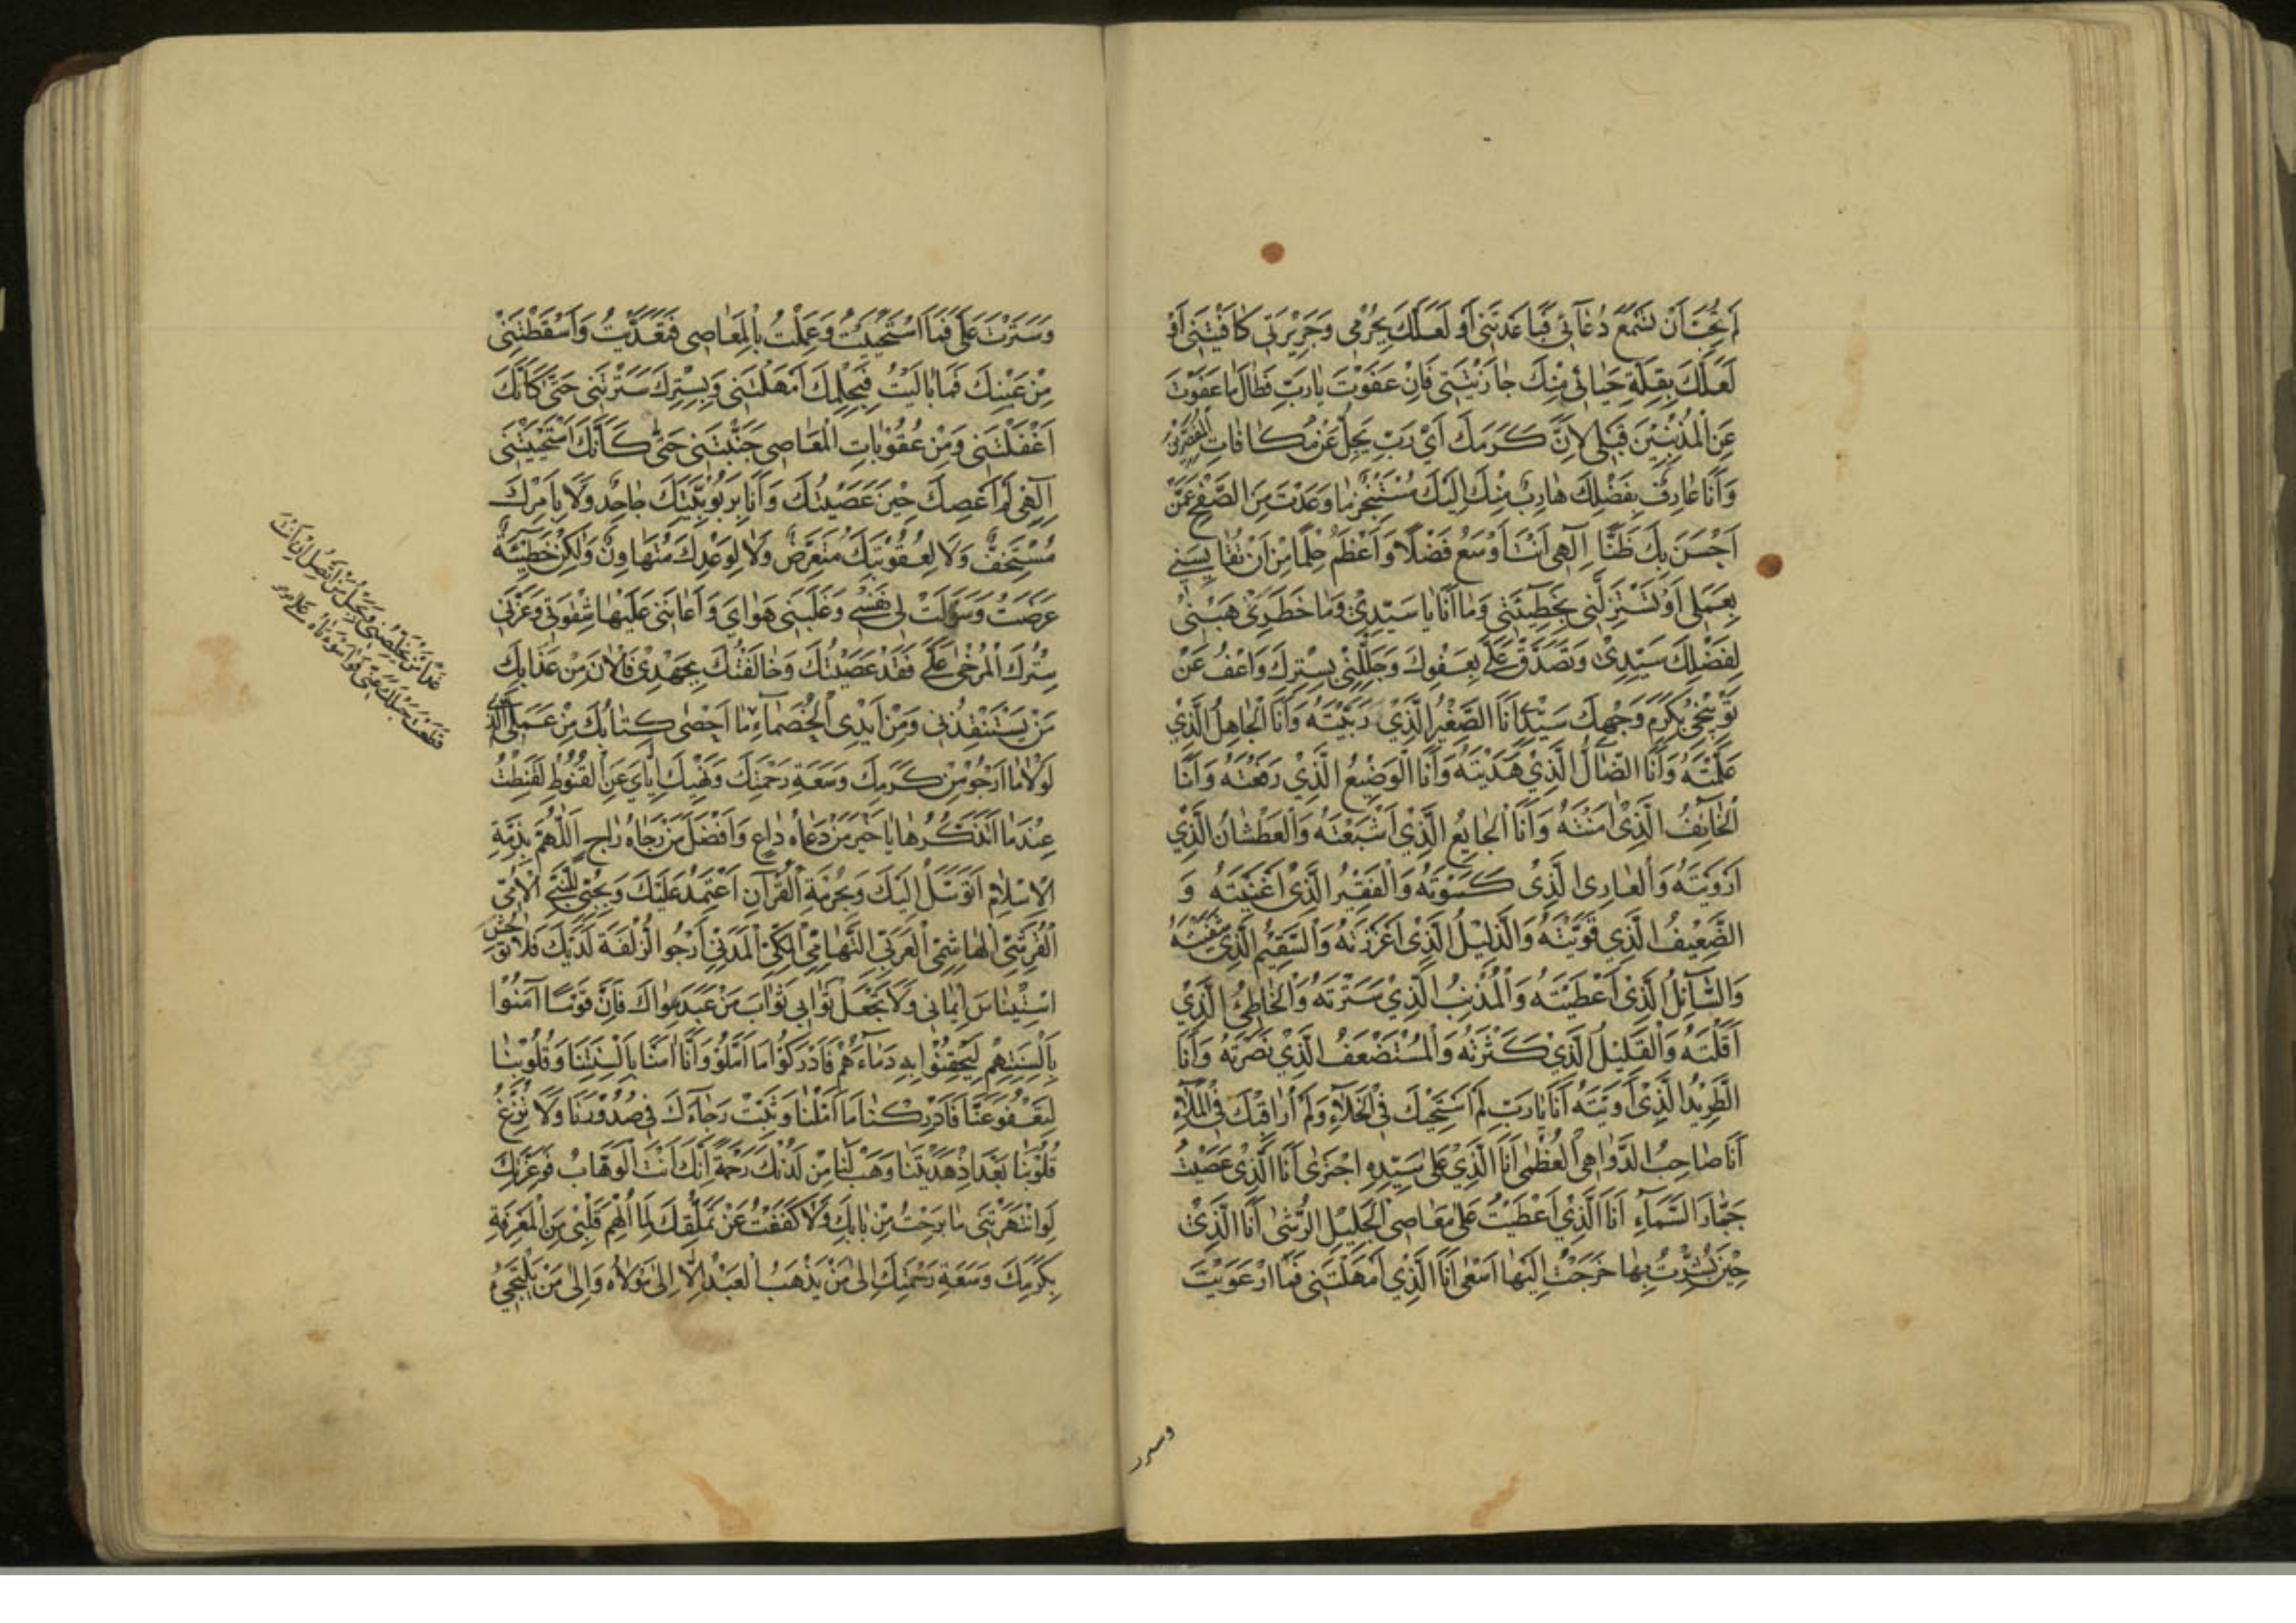 لَمْ تُحِبَّ أَنْ تَسْمَعَ دُعَآئِي فَبَاعَدْتَنِي أَوْ لَعَلَّكَ بِجُرْمِي وَجَرِيرَتِي كَافَيْتَنِي أَوْ
لَعَلَّكَ بِقِلَّةِ حَيَائِي مِنْكَ جَازَيْتَنِي فَإِنْ عَفَوْتَ يَا رَبِّ فَطَالَ مَا عَفَوْتَ
عَنِ الْمُذْنِبِيْنَ قَبْلِي لِأَنَّ كَرَمَكَ أَيْ رَبِّ يَجِلُّ عَنْ مُكَافَاتِ الْمُقَصِّرِيْنَ
وَأَنَا عَارِفٌ بِفَضْلِكَ هَارِبٌ مِنْكَ إِلَيْكَ مُتَنَجِّزٌ مَا وَعَدْتَ مِنَ الصَّفْحِ عَمَّنْ
أَحْسَنَ بِكَ ظَنًّا إِلٰهِي أَنْتَ أَوْسَعُ فَضْلًا وَأَعْظَمُ حِلْمًا مِنْ أَنْ تُقَايِسَنِي
بِعَمَلِي أَوْ تَسْتَزِلَّنِي بِخَطِيئَتِي وَمَا أَنَا يَا سَيِّدِيْ وَمَا خَطَرِيْ هَبْنِي
لِفَضْلِكَ سَيِّدِيْ وَتَصَدَّقْ عَلَيَّ بِعَفْوِكَ وَجَلِّلْنِي بِسِتْرِكَ وَاعْفُ عَنْ
تَوْبِيْخِي بِكَرَمِ وَجْهِكَ سَيِّدِي أَنَا الصَّغِيْرُ الَّذِيْ رَبَّيْتَهُ وَأَنَا الْجَاهِلُ الَّذِيْ
عَلَّمْتَهُ وَأَنَا الضَّالُّ الَّذِيْ هَدَيْتَهُ وَأَنَا الْوَضِيْعُ الَّذِيْ رَفَعْتَهُ وَأَنَا
الْخَائِفُ الَّذِيْ اٰمَنْتَهُ وَأَنَا الْجَايِعُ الَّذِيْ أَشْبَعْتَهُ وَالْعَطْشَانُ الَّذِيْ
أَرْوَيْتَهُ وَالْعَارِي الَّذِيْ كَسَوْتَهُ وَالْفَقِيْرُ الَّذِيْ أَغْنَيْتَهُ وَ
الضَّعِيْفُ الَّذِي قَوَّيْتَهُ وَالذَّلِيْلُ الَّذِيْ أَعْزَزْتَهُ وَالسَّقِيْمُ الَّذِيْ شَفَيْتَهُ
وَالسَّآئِلُ الَّذِيْ أَعْطَيْتَهُ وَالْمُذْنِبُ الَّذِيْ سَتَرْتَهُ وَالْخَاطِئُ الَّذِيْ
أَقَلْتَهُ وَالْقَلِيْلُ الَّذِيْ كَثَّرْتَهُ وَالْمُسْتَضْعَفُ الَّذِيْ نَصَرْتَهُ وَأَنَا
الطَّرِيْدُ الَّذِيْ اٰوَيْتَهُ أَنَا يَا رَبِّ لَمْ أَسْتَحْيِكَ فِي الْخَلَآءِ وَلَمْ أُرَاقِبْكَ فِي الْمَلَآءِ
أَنَا صَاحِبُ الدَّوَاهِي الْعُظْمٰى أَنَا الَّذِيْ عَلٰى سَيِّدِهِ اجْتَرٰى أَنَا الَّذِيْ عَصَيْتُ
جَبَّارَ السَّمَآءِ أَنَا الَّذِيْ أَعْطَيْتُ عَلٰى مَعَاصِي الْجَلِيْلِ الرُّشٰى أَنَا الَّذِيْ
حِيْنَ بُشِّرْتُ بِهَا خَرَجْتُ إِلَيْهَا أَسْعٰى أَنَا الَّذِيْ أَمْهَلْتَنِي فَمَا ارْعَوَيْتُ
وسترت
وَسَتَرْتَ عَلَيَّ فَمَا اسْتَحْيَيْتُ وَعَمِلْتُ بِالْمَعَاصِي فَتَعَدَّيْتُ وَأَسْقَطْتَنِي
مِنْ عَيْنِكَ فَمَا بَالَيْتُ فَبِحِلْمِكَ أَمْهَلْتَنِي وَبِسِتْرِكَ سَتَرْتَنِي حَتّٰى كَأَنَّكَ
أَغْفَلْتَنِي وَمِنْ عُقُوْبَاتِ الْمَعَاصِي جَنَّبْتَنِي حَتّٰى كَأَنَّكَ اسْتَحْيَيْتَنِي
إِلٰهِي لَمْ أَعْصِكَ حِيْنَ عَصَيْتُكَ وَأَنَا بِرُبُوْبِيَّتِكَ جَاحِدٌ وَلَا بِأَمْرِكَ
مُسْتَخِفٌّ وَلَا لِعُقُوْبَتِكَ مُتَعَرِّضٌ وَلَا لِوَعْدِكَ مُتَهَاوِنٌ وَلٰكِنْ خَطِيْئَةٌ
عَرَضَتْ وَسَوَّلَتْ لِي نَفْسِي وَغَلَبَنِي هَوَايَ وَأَعَانَنِي عَلَيْهَا شِقْوَتِي وَغَرَّنِي
سِتْرُكَ الْمُرْخٰى عَلَيَّ فَقَدْ عَصَيْتُكَ وَخَالَفْتُكَ بِجَهْدِيْ فَالْاٰنَ مِنْ عَذَابِكَ
مَنْ يَسْتَنْقِذُنِي وَمِنْ أَيْدِي الْخُصَمَآءِ مَا أَحْصٰى كِتَابُكَ مِنْ عَمَلِي الَّذِي
لَوْلَا مَا أَرْجُوْ مِنْ كَرَمِكَ وَسَعَةِ رَحْمَتِكَ وَنَهْيِكَ إِيَّايَ عَنِ الْقُنُوْطِ لَقَنَطْتُ
عِنْدَمَا أَتَذَكَّرُهَا يَا خَيْرَ مَنْ دَعَاهُ دَاعٍ وَأَفْضَلَ مَنْ رَجَاهُ رَاجٍ اَللّٰهُمَّ بِذِمَّةِ
الْإِسْلَامِ أَتَوَسَّلُ إِلَيْكَ وَبِحُرْمَةِ الْقُرْاٰنِ أَعْتَمِدُ عَلَيْكَ وَبِحُبِّي لِلنَّبِيِّ الْأُمِّيِّ
الْقُرَشِيِّ الْهَاشِمِيِّ الْعَرَبِيِّ التِّهَامِيِّ الْمَكِّيِّ الْمَدَنِيِّ أَرْجُو الزُّلْفَةَ لَدَيْكَ فَلَا تُوْحِشْ
اسْتِيْنَاسَ إِيْمَانِي وَلَا تَجْعَلْ ثَوَابِي ثَوَابَ مَنْ عَبَدَ سِوَاكَ فَإِنَّ قَوْمًا اٰمَنُوْا
بِأَلْسِنَتِهِمْ لِيَحْقِنُوْا بِهِ دِمَاءَهُمْ فَأَدْرَكُوْا مَا أَمَّلُوْ وَأَنَا اٰمَنَّا بِأَلْسِنَتِنَا وَقُلُوْبِنَا
لِتَعْفُوَ عَنَّا فَأَدْرِكْنَا مَا أَمَّلْنَا وَثَبِّتْ رَجَاءَكَ فِي صُدُوْرِنَا وَلَا تُزِغْ
قُلُوْبَنَا بَعْدَ إِذْ هَدَيْتَنَا وَهَبْ لَنَا مِنْ لَدُنْكَ رَحْمَةً إِنَّكَ أَنْتَ الْوَهَّابُ فَوَعِزَّتِكَ
لَوِ انْتَهَرْتَنِي مَا بَرِحْتُ مِنْ بَابِكَ وَلَا كَفَفْتُ عَنْ تَمَلُّقِكَ لِمَا أُلْهِمَ قَلْبِي مِنَ الْمَعْرِفَةِ
بِكَرَمِكَ وَسَعَةِ رَحْمَتِكَ إِلٰى مَنْ يَذْهَبُ الْعَبْدُ إِلَّا إِلٰى مَوْلَاهُ وَإِلٰى مَنْ يَلْتَجِئُ
غَدًا مَنْ يُخَلِّصُنِي وَبِحَبْلِ مَنْ أَتَّصِلُ إِنْ أَنْتَ
قَطَعْتَ حَبْلَكَ عَنِّي فَوَا سَوْأَتَاهُ عَلٰى